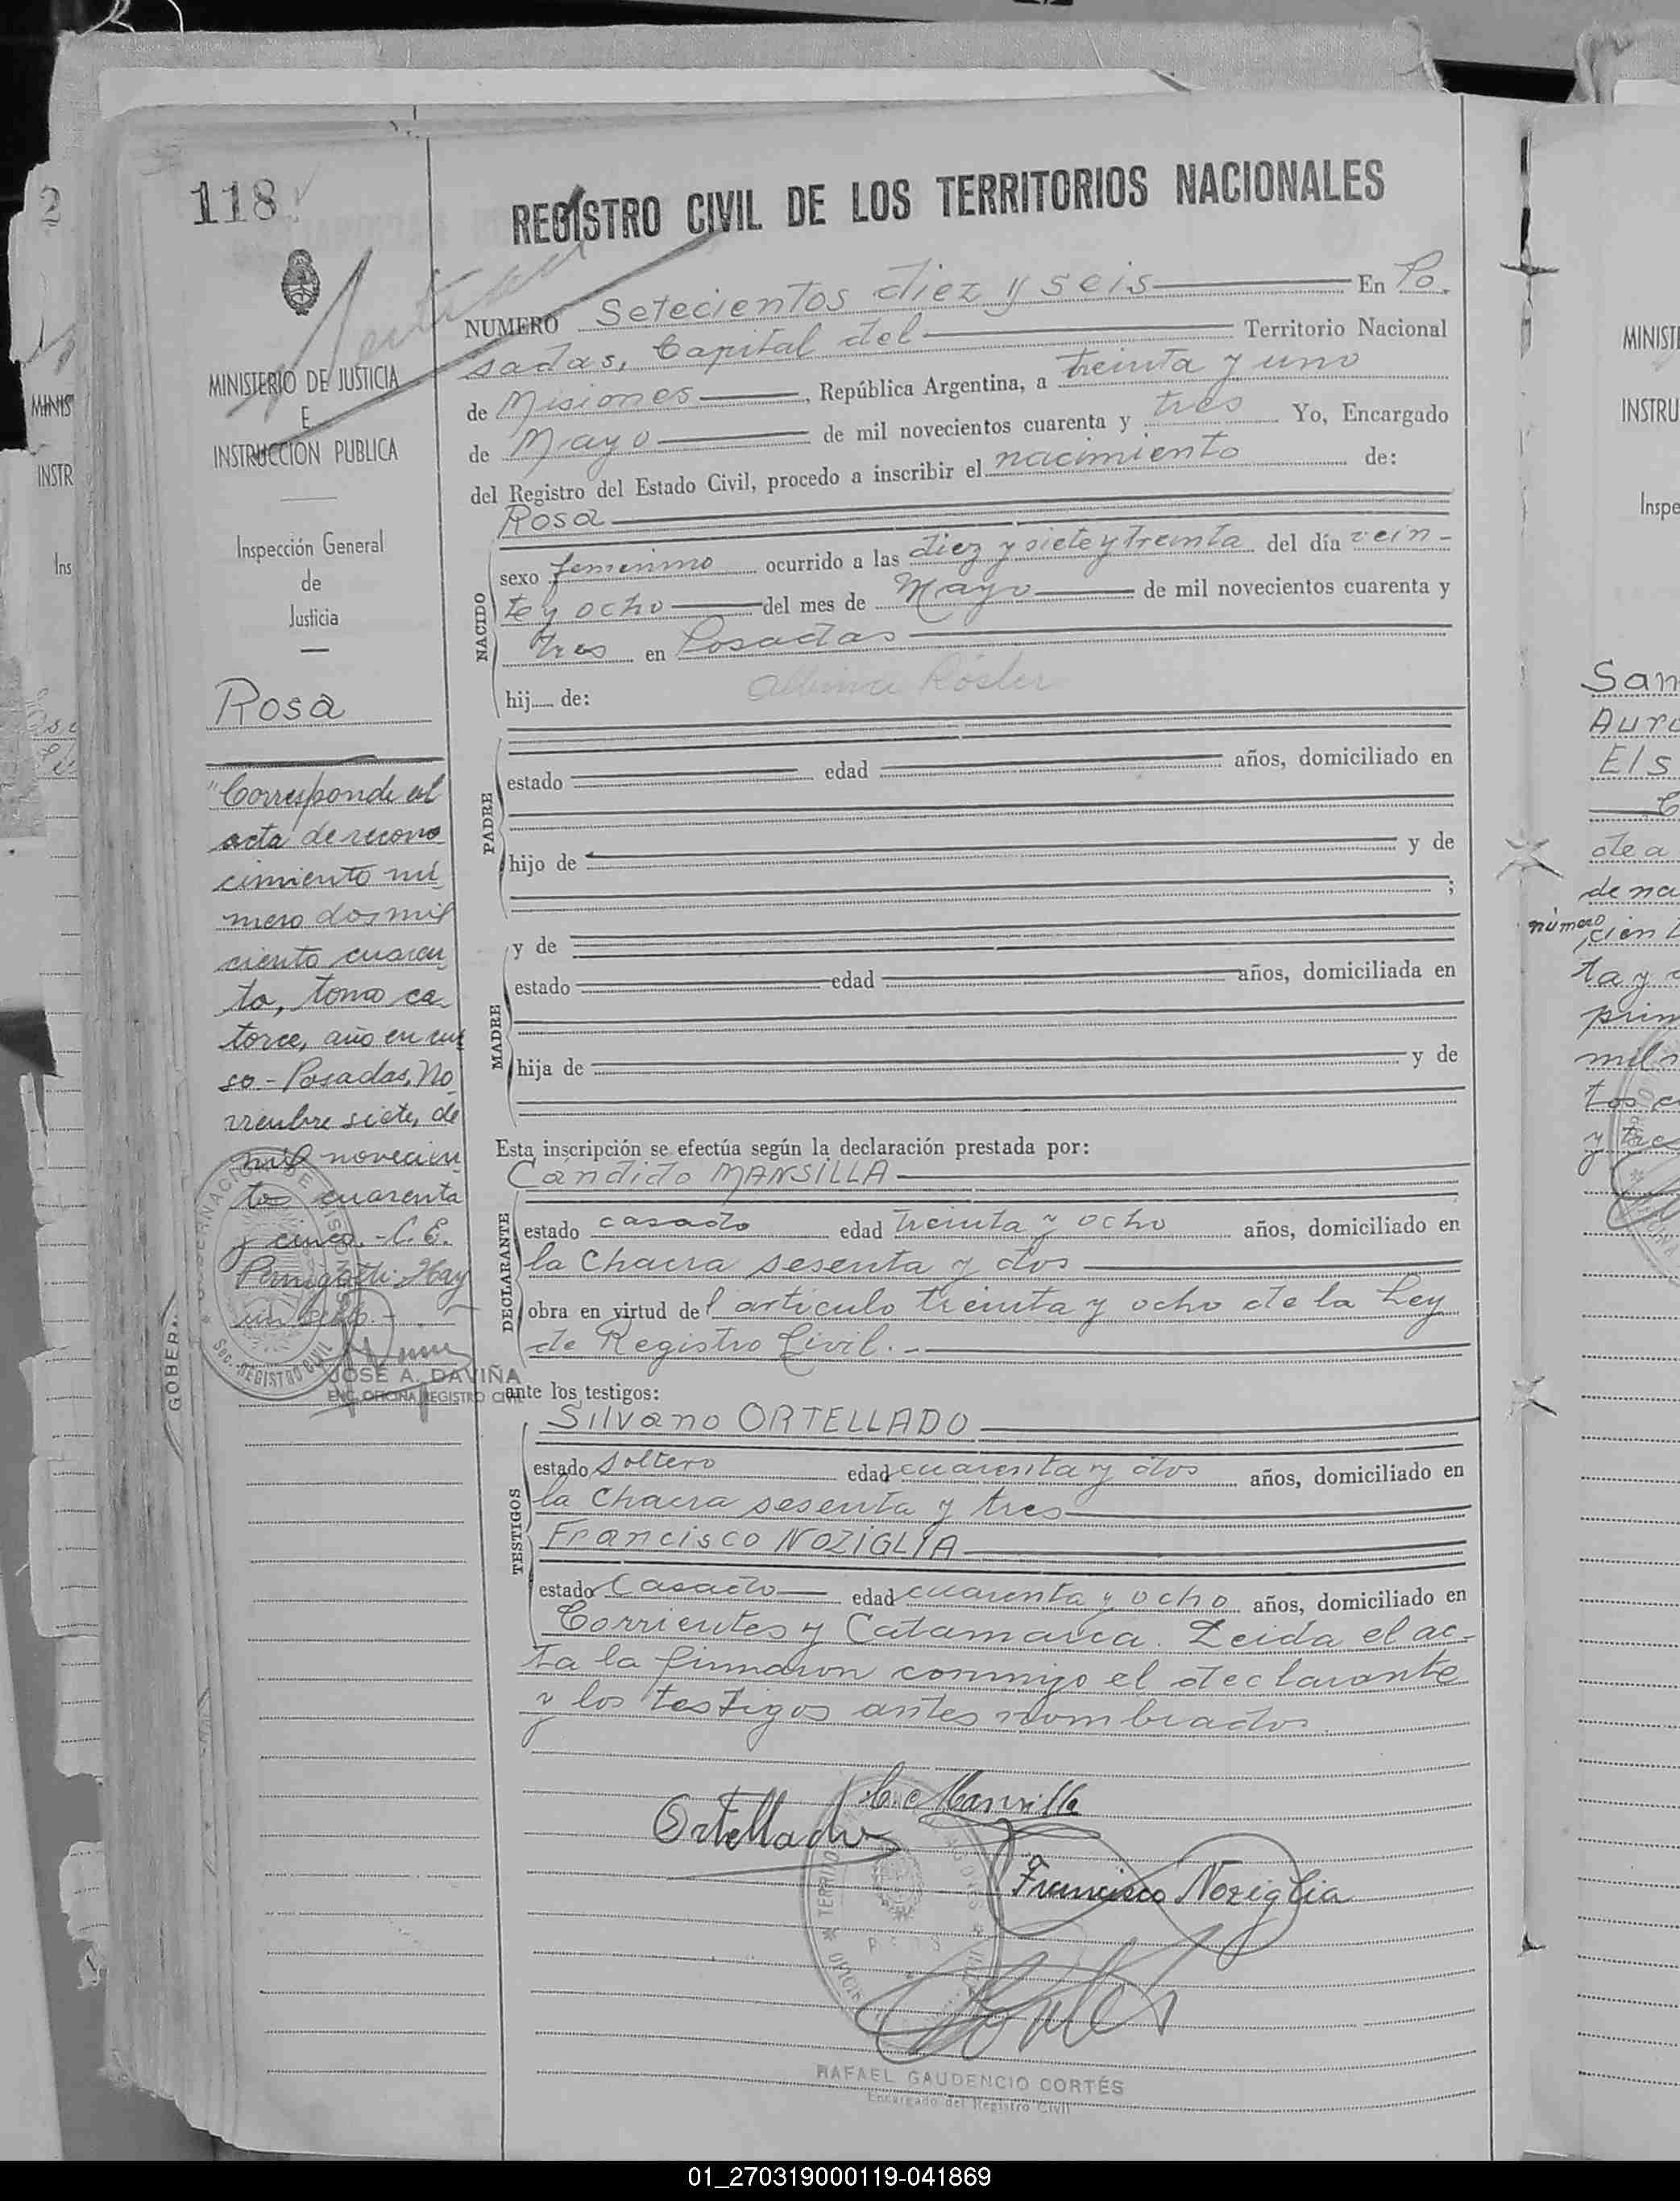 118
REGISTRO CIVIL DE LOS TERRITORIOS NACIONALES
NUMERO Setecientos diez y seis En Po-
sadas, Capital del Territorio Nacional
de Misiones, República Argentina, a treinta y uno
de Mayo de mil novecientos cuarenta y tres Yo, Encargado
del Registro del Estado Civil, procedo a inscribir el nacimiento de:
MINISTERIO DE JUSTICIA
E
INSTRUCCION PUBLICA
Inspección General
de
Justicia
Rosa
"Corresponde al
acta de recono
cimiento nú
mero dos mil
ciento cuaren
ta, tomo ca
torce, año en cur
so - Posadas, No
viembre siete, de
mil novecien
tos cuarenta
y cinco. - C. E.
Perugotti - Hay
un sello -
JOSE A. DAVIÑA
ENC. OFICINA REGISTRO CIVIL
NACIDO
Rosa
sexo femenino ocurrido a las diez y siete y treinta del día vein-
te y ocho del mes de Mayo de mil novecientos cuarenta y
tres en Posadas
hij de: Albina Rösler
PADRE
estado edad años, domiciliado en
hijo de y de
;
MADRE
y de
estado edad años, domiciliada en
hija de y de
Esta inscripción se efectúa según la declaración prestada por:
DECLARANTE
Cándido MANSILLA
estado casado edad treinta y ocho años, domiciliado en
la Chacra sesenta y dos
obra en virtud del artículo treinta y ocho de la Ley
de Registro Civil. -
ante los testigos:
TESTIGOS
Silvano ORTELLADO
estado soltero edad cuarenta y dos años, domiciliado en
la Chacra sesenta y tres
Francisco NOZIGLIA
estado Casado edad cuarenta y ocho años, domiciliado en
Corrientes y Catamarca. Leida el ac-
ta la firmaron conmigo el declarante
y los testigos antes nombrados
C. Mansilla
Ortellado
Francisco Noziglia
RAFAEL GAUDENCIO CORTÉS
Encargado del Registro Civil
2
MINIS
INSTR
Ins
GOBER
MINISTE
INSTRU
Inspe
San
Auro
Els
de a
de na
número
cien
ta y
prim
mil n
tos c
y tres
01_270319000119-041869